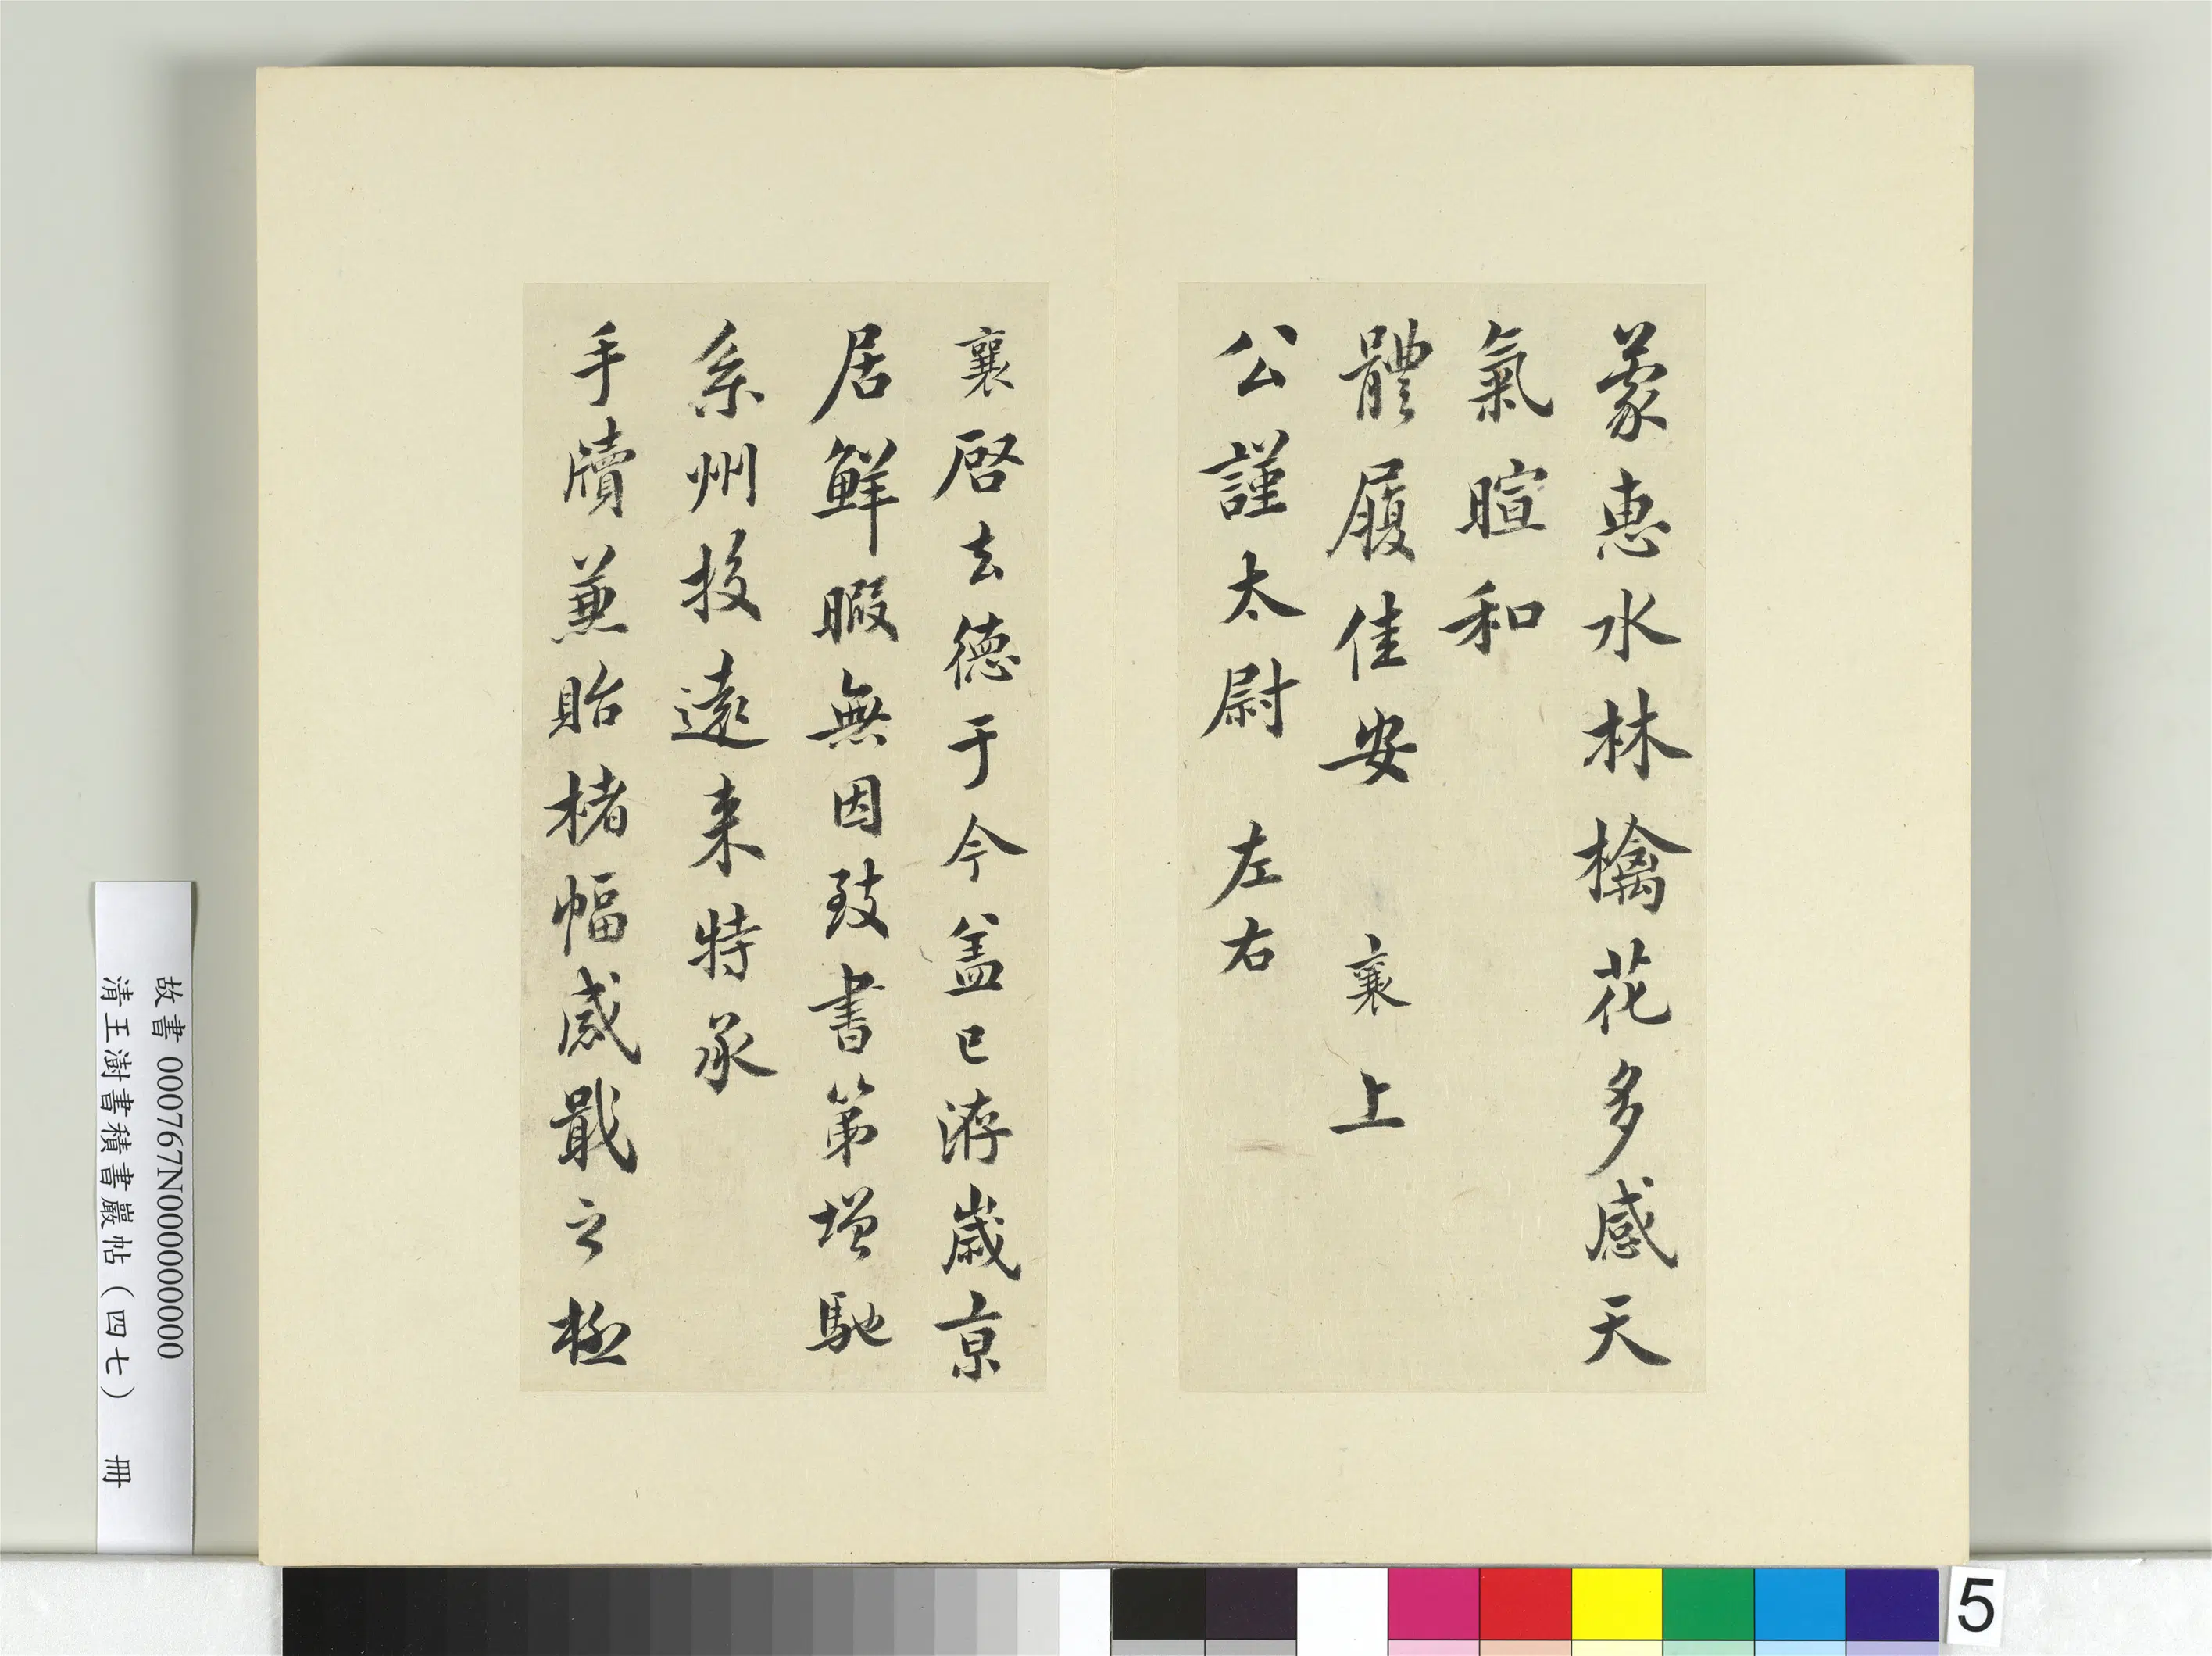 蒙惠水林檎花多感天
氣暄和
體履佳安 襄上
公謹太尉 左右
襄啓去德于今盖已洊歲京
居鮮暇無因致書第增馳
系州投遠来特承
手牘兼貽楮幅感戢之極
故書 000767N000000000
清王澍書積書巖帖(四七) 冊
5